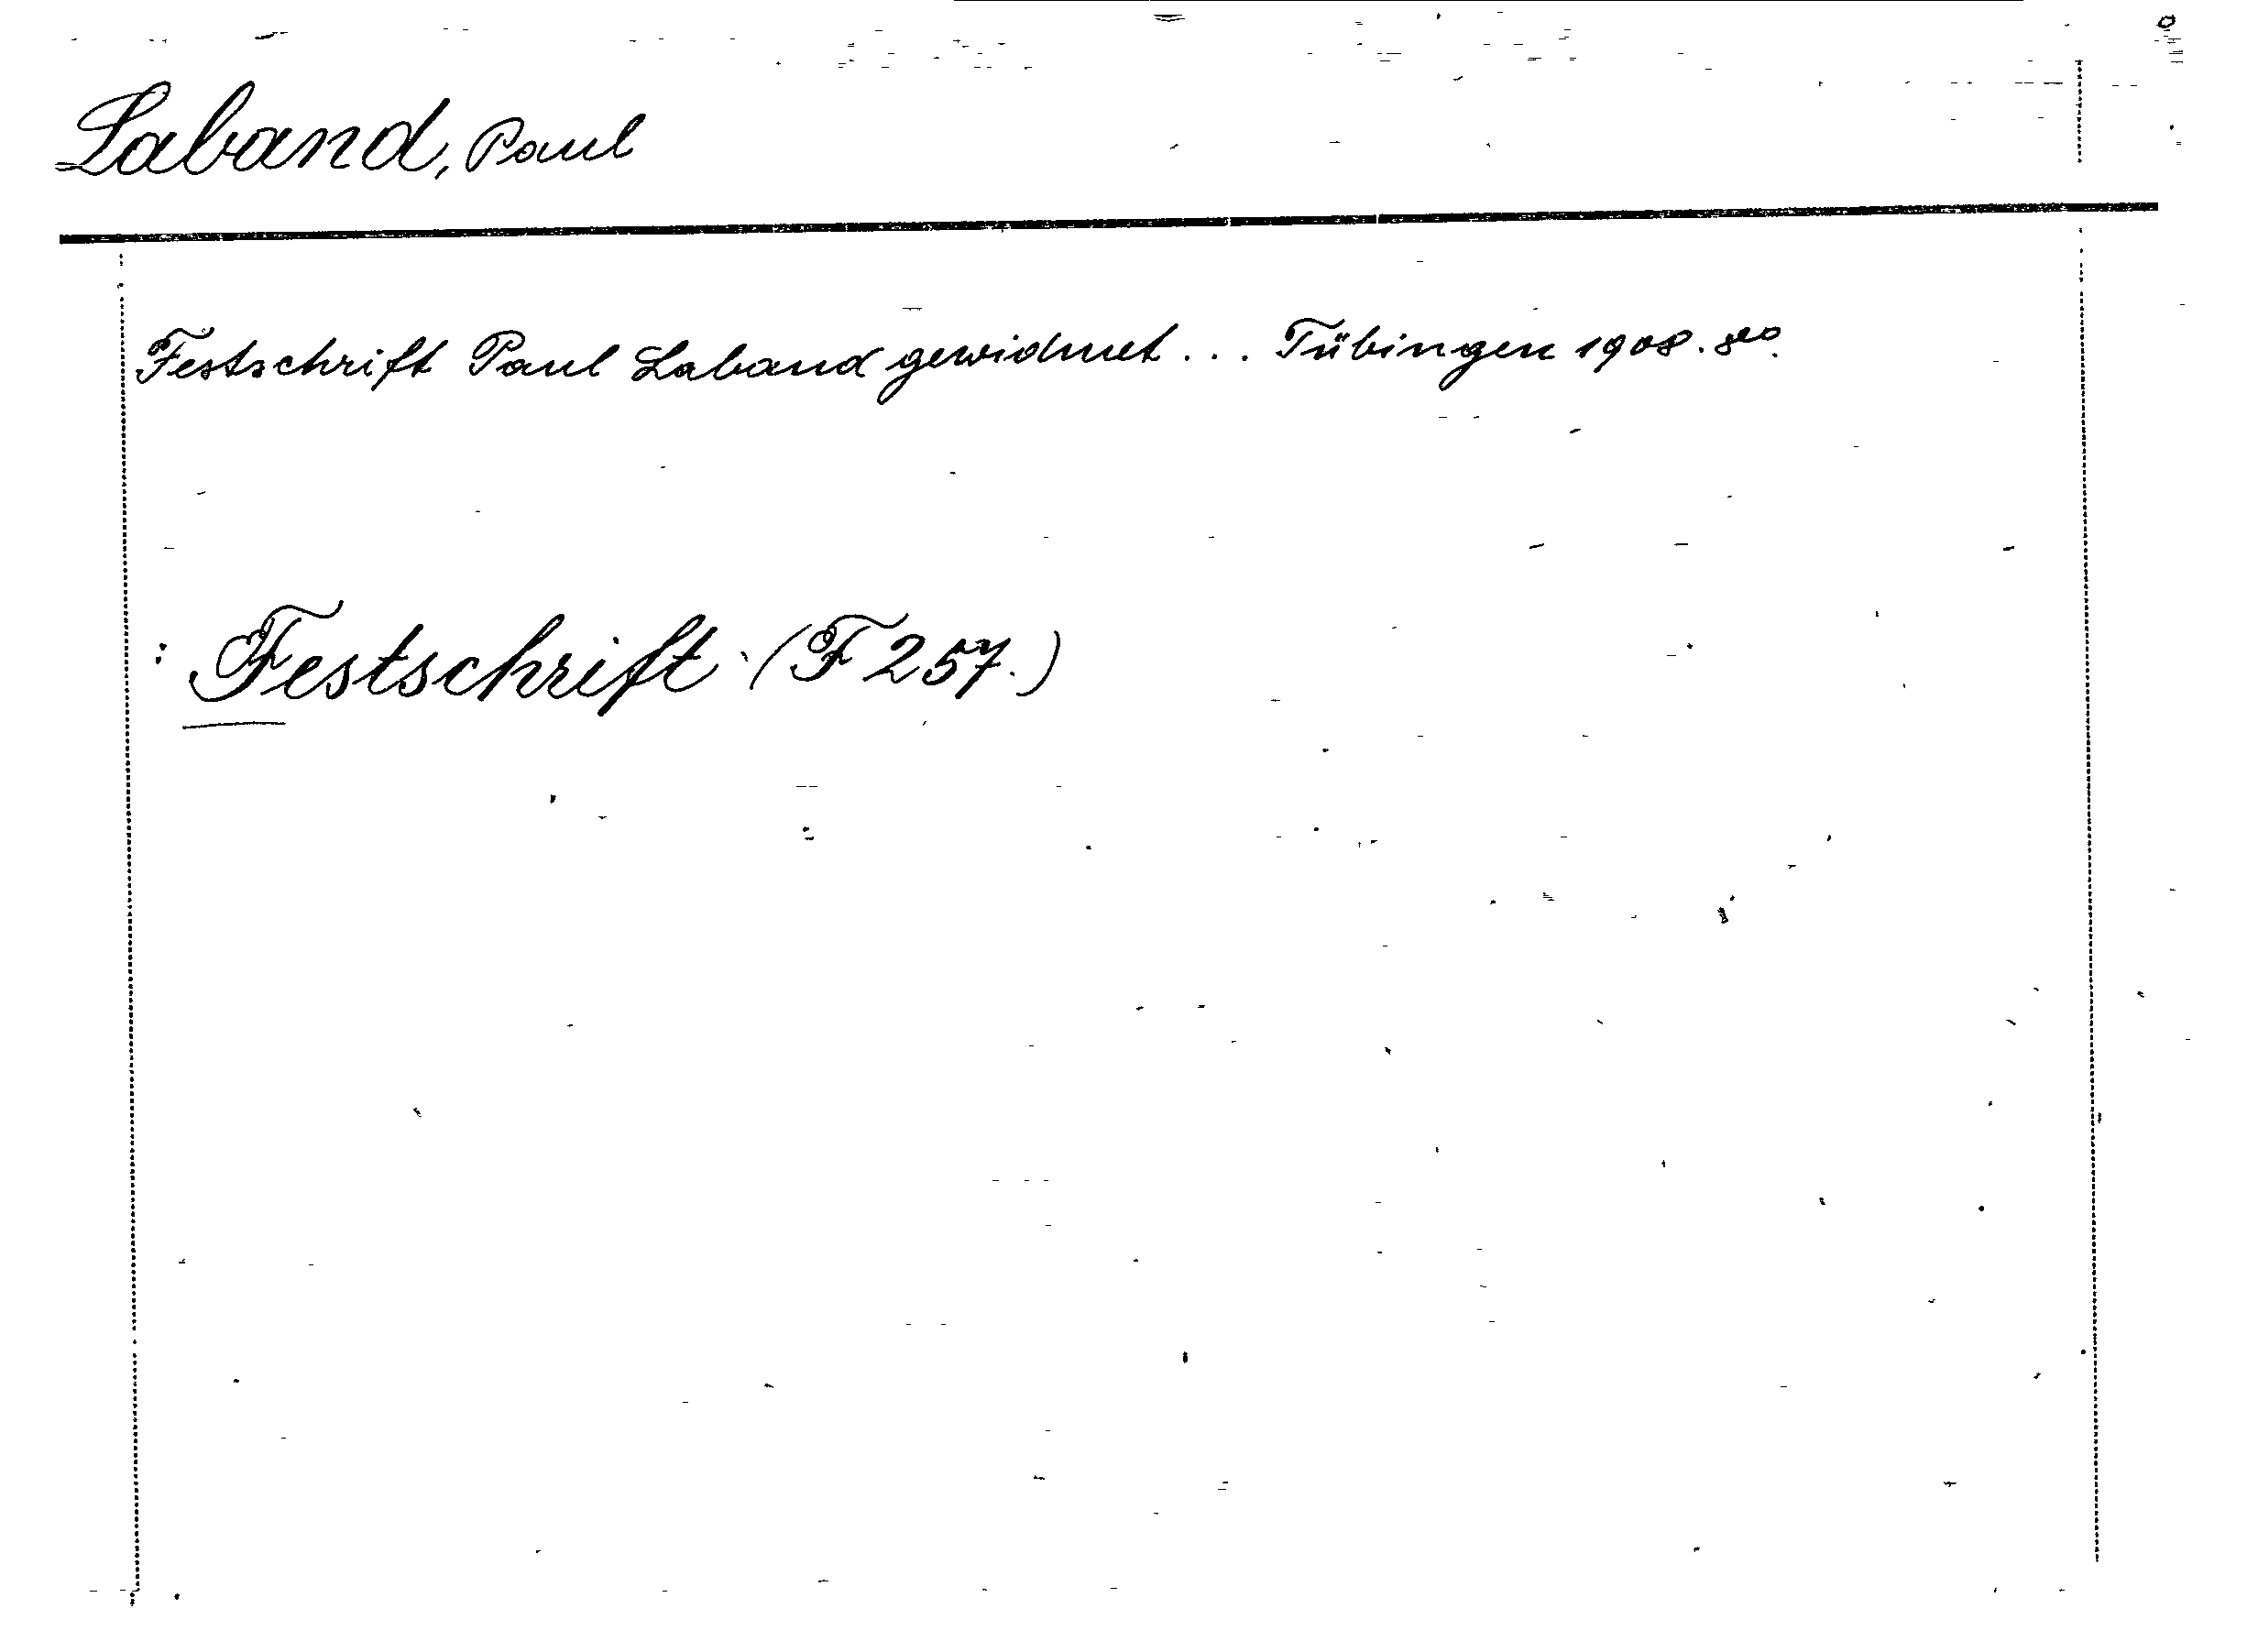 Laband, Paul
Festschrift Paul Laband gewidmet... Tübingen 1908. 8vo.
: Festschrift (F 257.)